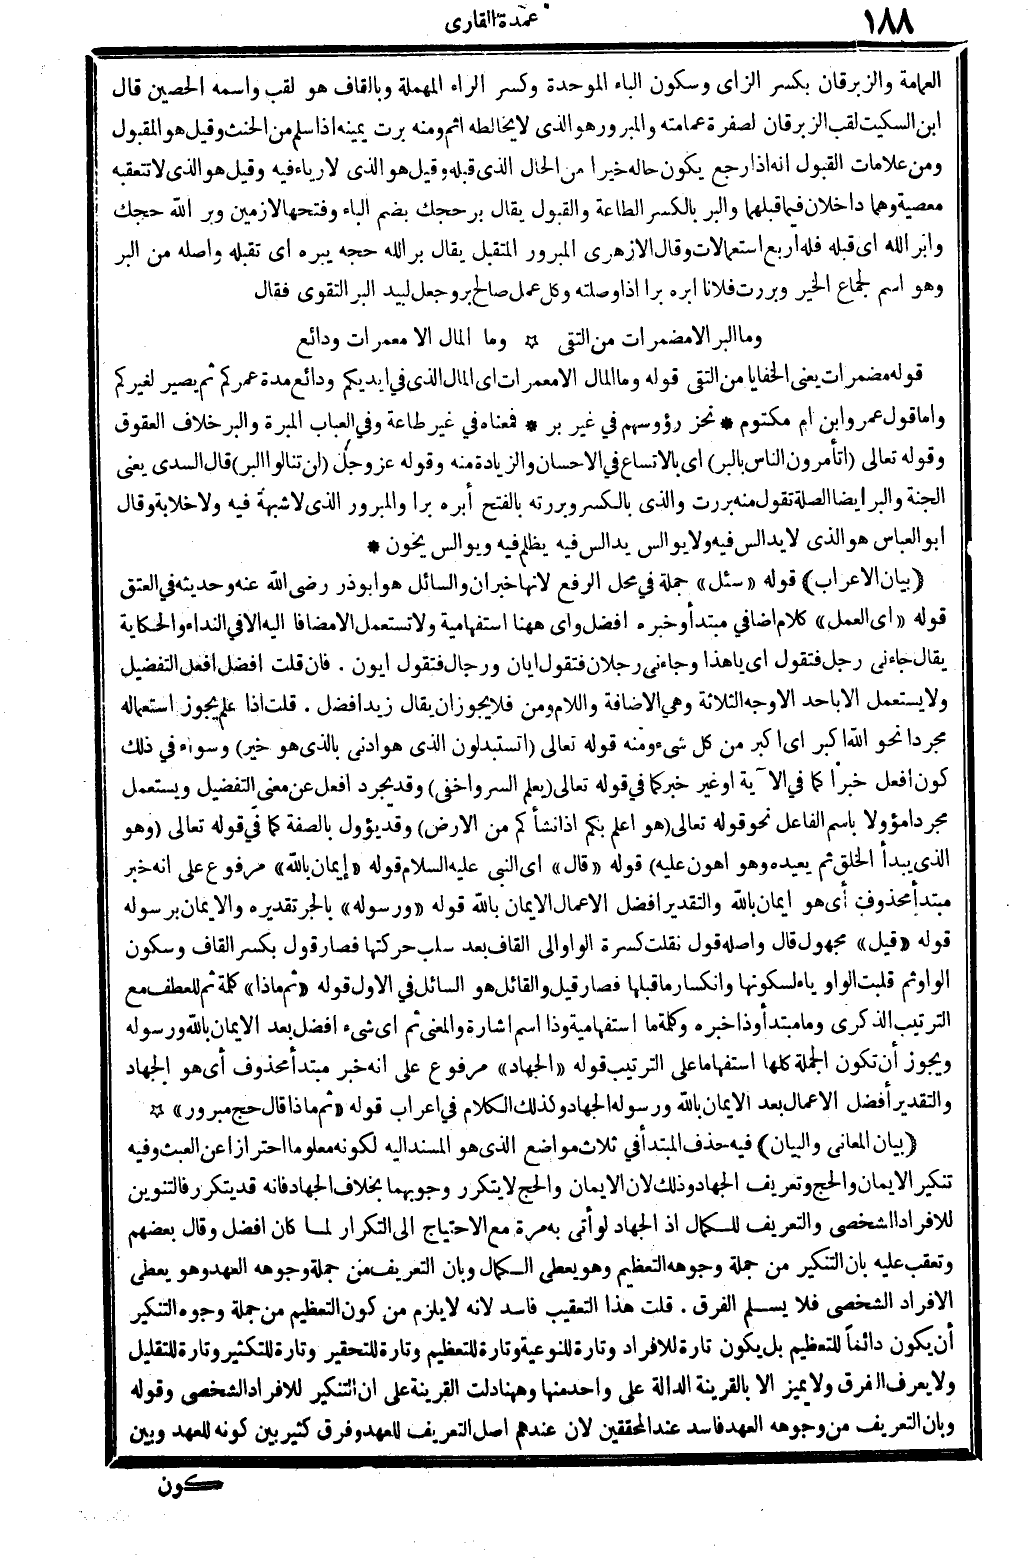 ١٨٨
عمدة القارى
العامة والزبرقان بكسر الزاى وسكون الباء الموحدة وكسر الراء المهملة وبالقاف هو لقب واسمه الحصين قال
ابن السكيت لقب الزبرقان لصفرة عمامته والمبرور هو الذى لا يخالطه اثم ومنه برت يمينه اذا سلم من الحنث وقيل هو المقبول
ومن علامات القبول انه اذا رجع يكون حاله خيرا من الحال الذى قبله وقيل هو الذى لا رياء فيه وقيل هو الذى لا تتعقبه
معصية وهما داخلان فيما قبلهما والبر بالكسر الطاعة والقبول يقال بر حجك بضم الباء وفتحها لازمين وبر الله حجك
وابر الله اى قبله فله اربع استعمالات وقال الازهرى المبرور المتقبل يقال بر الله حجه يبره اى تقبله واصله من البر
وهو اسم لجماع الخير وبررت فلانا ابره برا اذا وصلته وكل عمل صالح بر وجعل لبيد البر التقوى فقال
وما البر الا مضمرات من التقى ☆ وما المال الا معمرات ودائع
قوله مضمرات يعنى الخفايا من التقى قوله وما المال الا معمرات اى المال الذى في ايديكم ودائع مدة عمركم ثم يصير لغيركم
واما قول عمرو ابن ام مكتوم * نحز رؤوسهم في غير بر * فمعناه في غير طاعة وفي العباب المبرة والبر خلاف العقوق
وقوله تعالى (اتأمرون الناس بالبر) اى بالاتساع في الاحسان والزيادة منه وقوله عز وجل (لن تنالوا البر) قال السدى يعنى
الجنة والبر ايضا الصلة تقول منه بررت والذى بالكسر وبررته بالفتح أبره برا والمبرور الذى لا شبهة فيه ولا خلابة وقال
ابو العباس هو الذى لا يدالس فيه ولا يوالس يدالس فيه يظلم فيه ويوالس يخون *
(بيان الاعراب) قوله «سئل» جملة في محل الرفع لانها خبر ان والسائل هو ابو ذر رضى الله عنه وحديثه في العتق
قوله «اى العمل» كلام اضافي مبتدأ وخبره افضل واى ههنا استفهامية ولا تستعمل الا مضافا اليه الا في النداء والحكاية
يقال جاءنى رجل فتقول اى يا هذا وجاءنى رجلان فتقول ايان ورجال فتقول ايون . فان قلت افضل افعل التفضيل
ولا يستعمل الا باحد الاوجه الثلاثة وهي الاضافة واللام ومن فلا يجوز ان يقال زيد افضل . قلت اذا علم يجوز استعماله
مجردا نحو الله اكبر اى اكبر من كل شىء ومنه قوله تعالى (اتستبدلون الذى هو ادنى بالذى هو خير) وسواء في ذلك
كون افعل خبرا كما في الآية او غير خبر كما في قوله تعالى (يعلم السر واخفى) وقد يجرد افعل عن معنى التفضيل ويستعمل
مجردا مؤولا باسم الفاعل نحو قوله تعالى (هو اعلم بكم اذ انشأكم من الارض) وقد يؤول بالصفة كما في قوله تعالى (وهو
الذى يبدأ الخلق ثم يعيده وهو اهون عليه) قوله «قال» اى النبى عليه السلام قوله «إيمان بالله» مرفوع على انه خبر
مبتدأ محذوف أى هو ايمان بالله والتقدير افضل الاعمال الايمان بالله قوله «ورسوله» بالجر تقديره والايمان برسوله
قوله «قيل» مجهول قال واصله قول نقلت كسرة الواو الى القاف بعد سلب حركتها فصار قول بكسر القاف وسكون
الواو ثم قلبت الواو ياء لسكونها وانكسار ما قبلها فصار قيل والقائل هو السائل في الاول قوله «ثم ماذا» كلمة ثم للعطف مع
الترتيب الذكرى وما مبتدأ وذا خبره وكلمة ما استفهامية وذا اسم اشارة والمعنى ثم اى شىء افضل بعد الايمان بالله ورسوله
ويجوز أن تكون الجملة كلها استفهاما على الترتيب قوله «الجهاد» مرفوع على انه خبر مبتدأ محذوف أى هو الجهاد
والتقدير أفضل الاعمال بعد الايمان بالله ورسوله الجهاد وكذلك الكلام في اعراب قوله «ثم ماذا قال حج مبرور» ☆
(بيان المعانى والبيان) فيه حذف المبتدأ في ثلاث مواضع الذى هو المسند اليه لكونه معلوما احترازا عن العبث وفيه
تنكير الايمان والحج وتعريف الجهاد وذلك لان الايمان والحج لا يتكرر وجوبهما بخلاف الجهاد فانه قد يتكرر فالتنوين
للافراد الشخصى والتعريف للكمال اذ الجهاد لو أتى به مرة مع الاحتياج الى التكرار لما كان افضل وقال بعضهم
وتعقب عليه بان التنكير من جملة وجوهه التعظيم وهو يعطى الكمال وبان التعريف من جملة وجوهه العهد وهو يعطى
الافراد الشخصى فلا يسلم الفرق . قلت هذا التعقيب فاسد لانه لا يلزم من كون التعظيم من جملة وجوه التنكير
أن يكون دائماً للتعظيم بل يكون تارة للافراد وتارة للنوعية وتارة للتعظيم وتارة للتحقير وتارة للتكثير وتارة للتقليل
ولا يعرف الفرق ولا يميز الا بالقرينة الدالة على واحد منها وههنا دلت القرينة على ان التنكير للافراد الشخصى وقوله
وبان التعريف من وجوهه العهد فاسد عند المحققين لان عندهم اصل التعريف للعهد وفرق كثير بين كونه للعهد وبين
كون